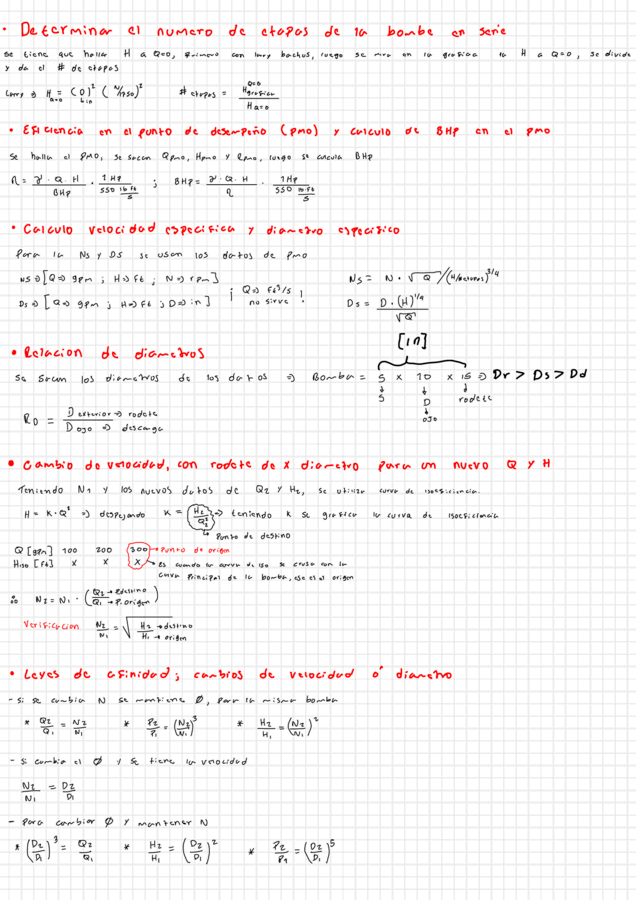 • Determinar el numero de etapas de la bomba en serie
Se tiene que hallar H a Q=0, primero con larry bachus, luego se mira en la grafica la H a Q=0, se divide
y da el # de etapas
Larry => H Q=0 = (D)² Lin (N/1750)²   # etapas = H grafica Q=0 / H Q=0
• Eficiencia en el punto de desempeño (pmo) y calculo de BHP en el pmo
Se halla el PMO, se sacan Qpmo, Hpmo y ηpmo, luego se calcula BHP
η = γ · Q · H / BHP · 1 HP / 550 lb ft/s ; BHP = γ · Q · H / η · 1 HP / 550 lb·ft/s
• Calculo velocidad especifica y diametro especifico
Para la Ns y Ds se usan los datos de pmo
NS => [Q => gpm ; H => Ft ; N => rpm]   Ns = N · √Q / (H/#etapas)^3/4
Ds => [Q => gpm ; H => Ft ; D => in] ¡ Q => Ft³/s no sirve !   Ds = D · (H)^1/4 / √Q
• Relacion de diametros   [in]
Se sacan los diametros de los datos => Bomba = 5 x 10 x 15 => Dr > Ds > Dd
S   D   rodete
ojo
RD = D exterior → rodete / D ojo → descarga
• Cambio de velocidad, con rodete de x diametro para un nuevo Q y H
Teniendo N1 y los nuevos datos de Q2 y H2, se utiliza curva de isoeficiencia.
H = K · Q² => despejando K = H2/Q2² => teniendo K se grafica la curva de isoeficiencia
Punto de destino
Q [gpm] 100 200 300 → Punto de origen
Hiso [Ft] x x x → Es cuando la curva de iso se cruza con la
curva principal de la bomba, ese es el origen
∴ N2 = N1 · (Q2 → P.destino / Q1 → P.origen)
Verificacion N2/N1 = √(H2 → destino / H1 → origen)
• Leyes de afinidad; cambios de velocidad ó diametro
- Si se cambia N se mantiene Ø, para la misma bomba
* Q2/Q1 = N2/N1   * P2/P1 = (N2/N1)³   * H2/H1 = (N2/N1)²
- Si cambia el Ø y se tiene la velocidad
N2/N1 = D2/D1
- Para cambiar Ø y mantener N
* (D2/D1)³ = Q2/Q1   * H2/H1 = (D2/D1)²   * P2/P1 = (D2/D1)⁵